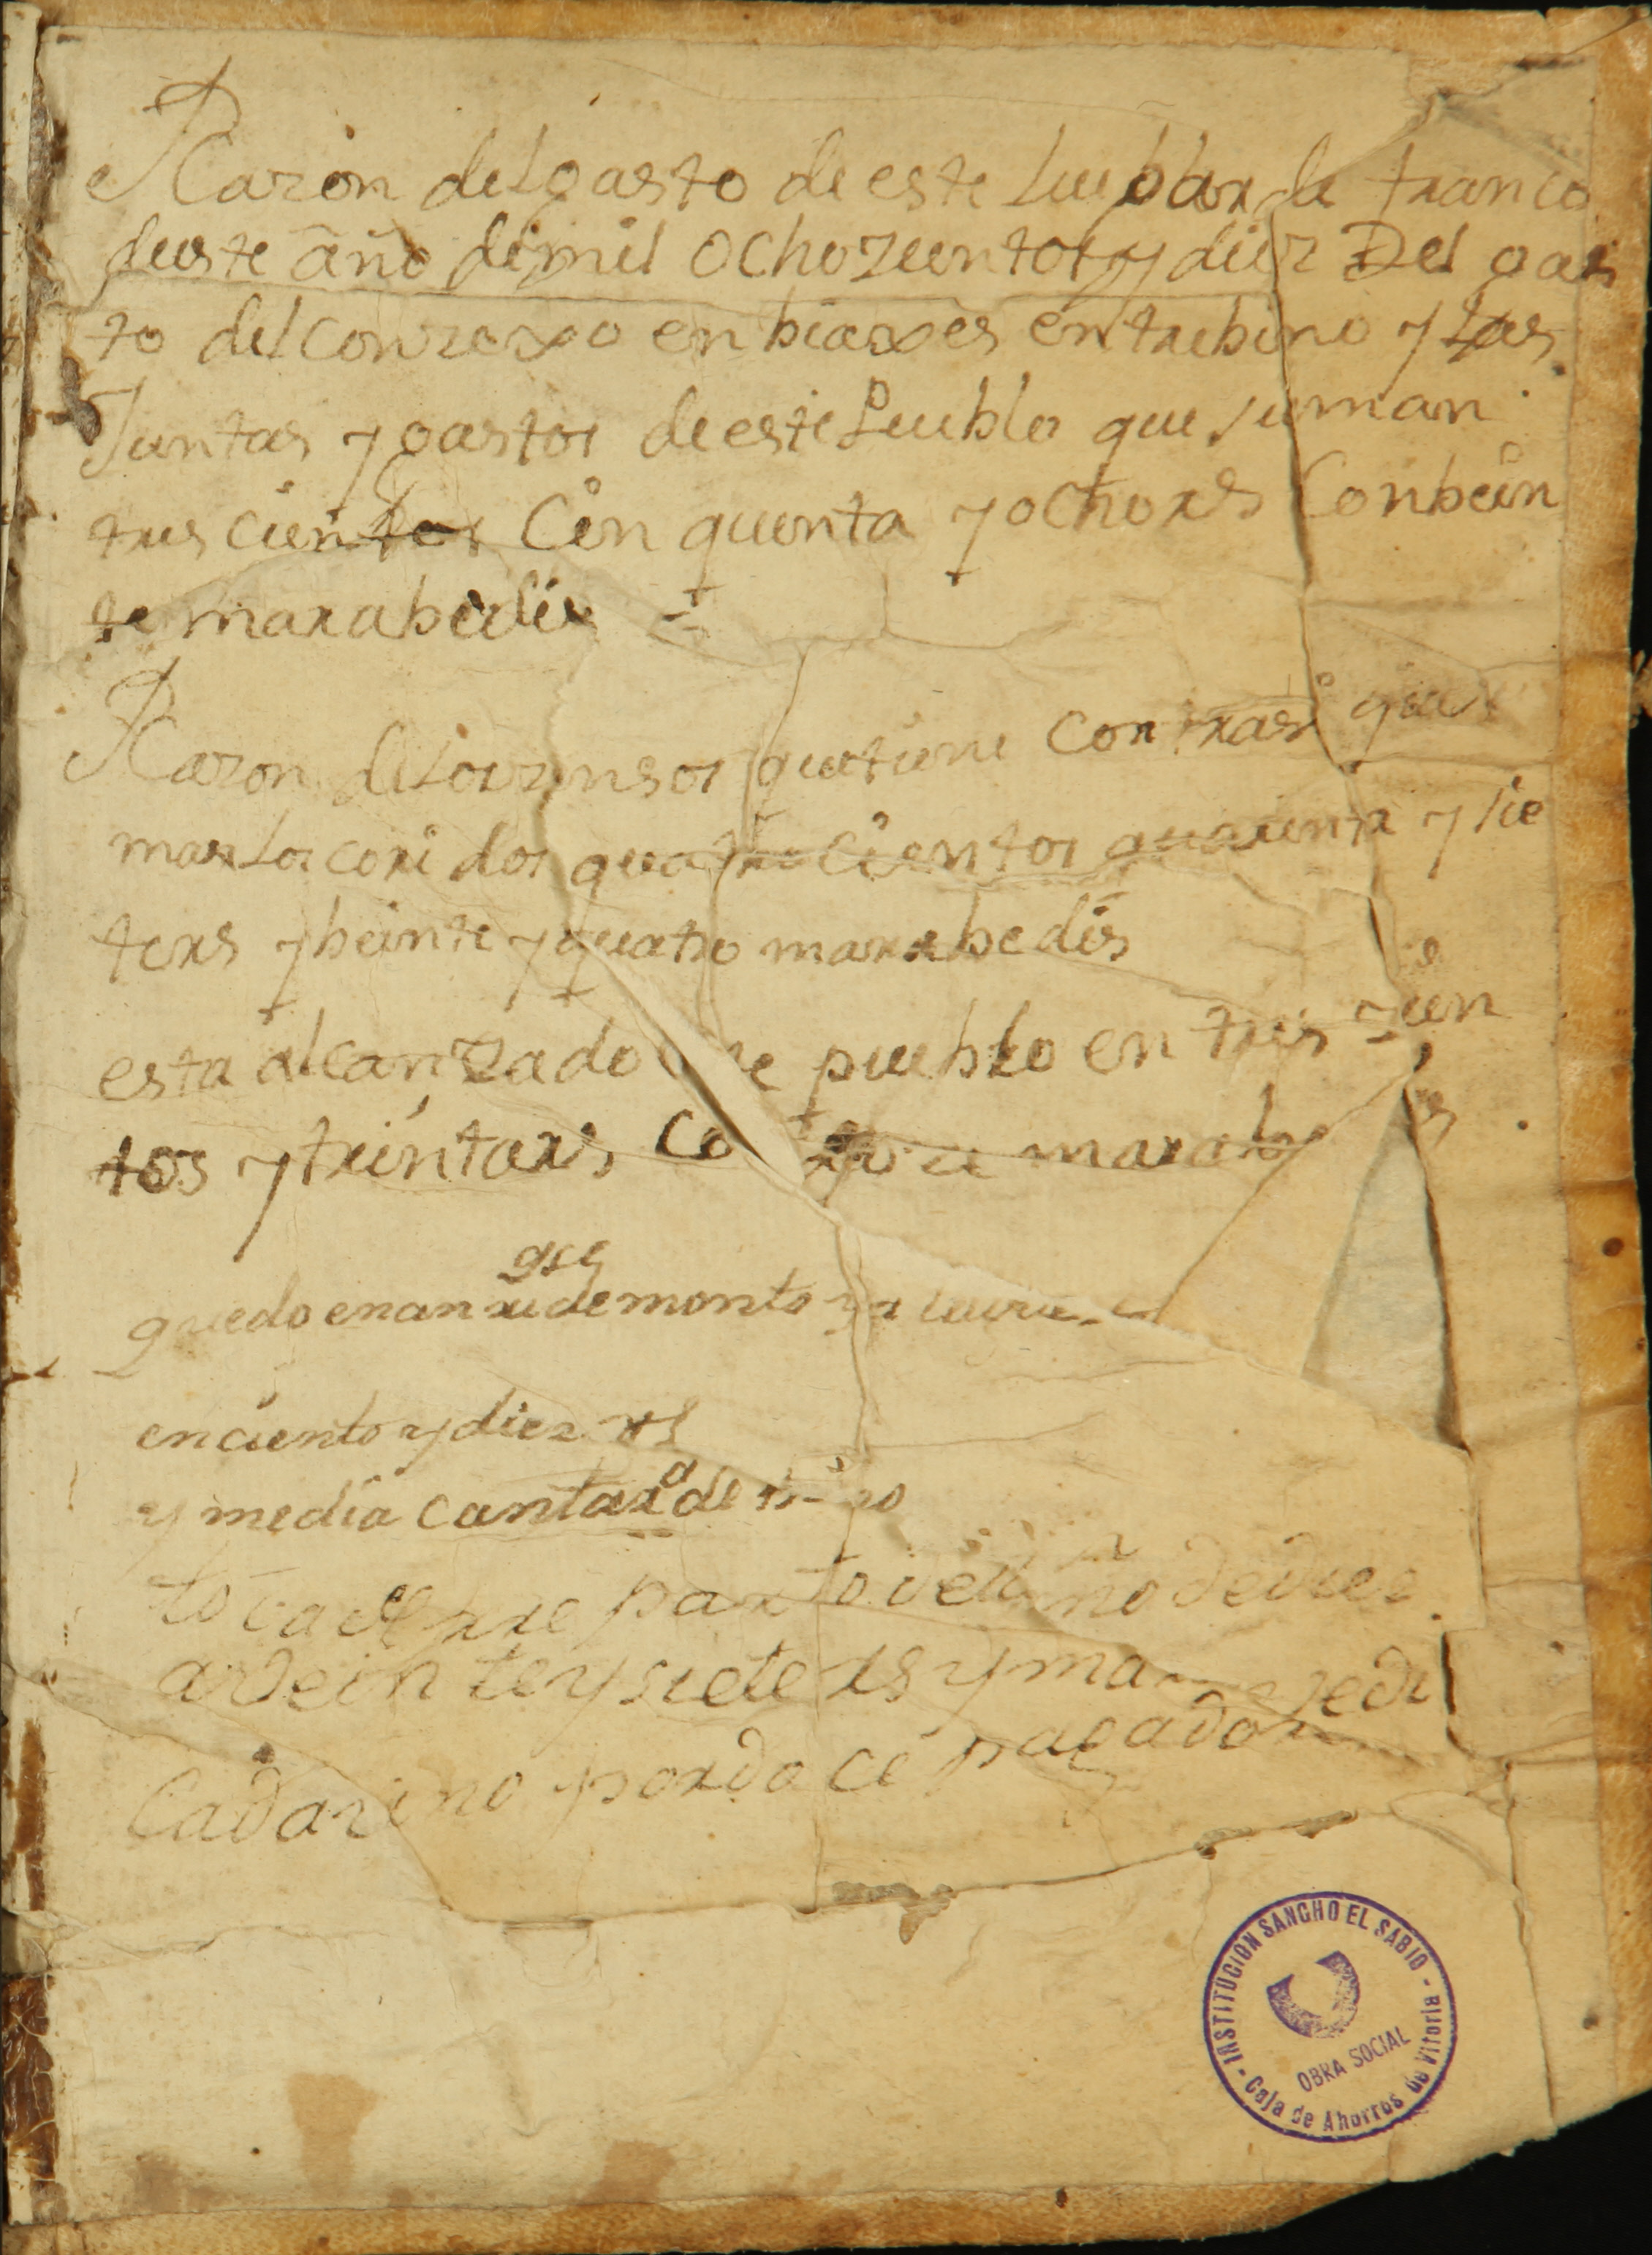 Razon del gasto de este Lueblo de franco
deeste año de mil Ochozientos y diez Del gas
to del conzexo en biaxes en tribino y las
Juntas y gastos de este Pueblo que suman
tres cientos Cin quenta y ocho rs Con bein
te marabedis
Razon de los zensos que tiene Contrasi que
mas los coridos quatro cientos quarenta y sie
te rs y beinte y quatro marabedis
esta alcanzado pueblo en tres zien
tos y treinta rs marab
quedo enan de monto
en ciento y diez rs
y media cantara de
to ca parto del
a veinte y siete rs y ma
Cada zino por doce pagador
INSTITUCION SANCHO EL SABIO
OBRA SOCIAL
Caja de Ahorros de Vitoria